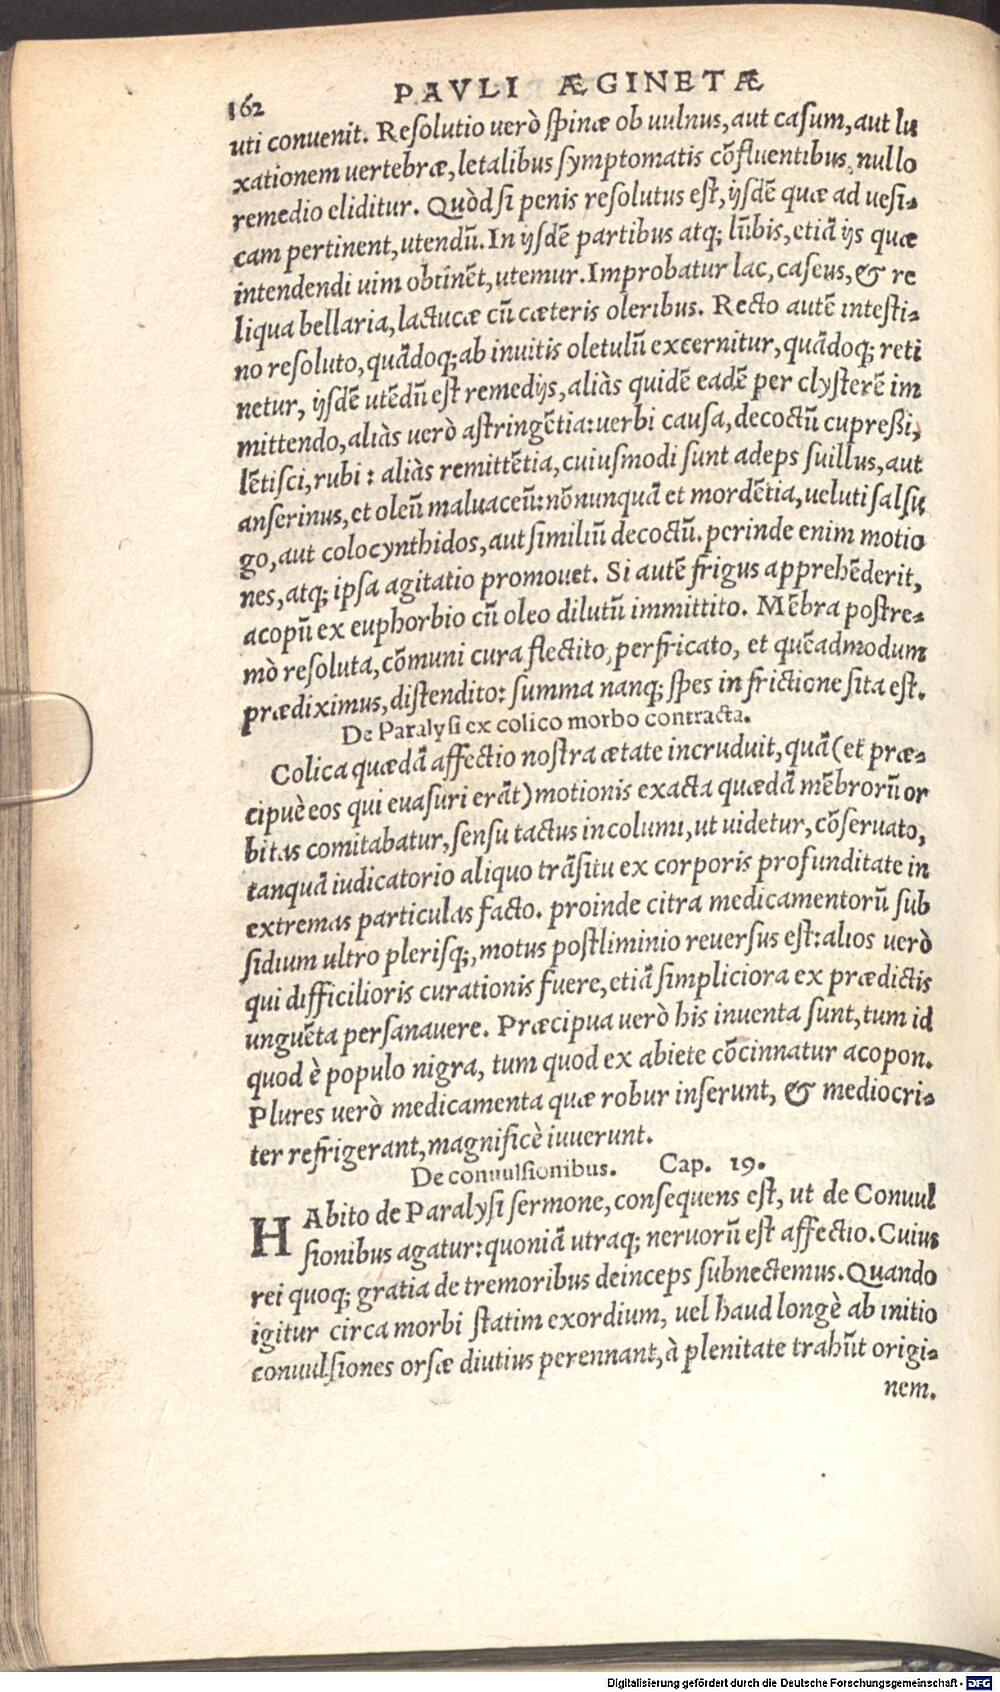 162 PAVLI ÆGINETÆ
uti convenit. Resolutio uerò spinæ ob uulnus, aut casum, aut lu
xationem uertebræ, letalibus symptomatis cõfluentibus, nullo
remedio eliditur. Quòd si penis resolutus est, ijsdẽ quæ ad uesi-
cam pertinent, utendũ. In ijsdẽ partibus atq; lũbis, etiã ijs quæ
intendendi uim obtinẽt, utemur. Improbatur lac, caseus, & re
liqua bellaria, lactucæ cũ cæteris oleribus. Recto autẽ intesti-
no resoluto, quãdoq; ab inuitis oletulũ excernitur, quãdoq; reti
netur, ijsdẽ utẽdũ est remedijs, aliàs quidẽ eadẽ per clysterẽ im
mittendo, aliàs uerò astringẽtia: uerbi causa, decoctũ cupressi,
lẽtisci, rubi: aliàs remittẽtia, cuiusmodi sunt adeps suillus, aut
anserinus, et oleũ maluaceũ: nõnunquã et mordẽtia, ueluti salsu
go, aut colocynthidos, aut similiũ decoctũ. perinde enim motio
nes, atq; ipsa agitatio promouet. Si autẽ frigus apprehẽderit,
acopũ ex euphorbio cũ oleo dilutũ immittito. Mẽbra postre-
mò resoluta, cõmuni cura flectito, perfricato, et quẽadmodum
prædiximus, distendito: summa nanq; spes in frictione sita est.
De Paralysi ex colico morbo contracta.
Colica quædã affectio nostra ætate incruduit, quã (et præ-
cipuè eos qui euasuri erãt) motionis exacta quædã mẽbrorũ or
bitas comitabatur, sensu tactus incolumi, ut uidetur, cõseruato,
tanquã iudicatorio aliquo trãsitu ex corporis profunditate in
extremas particulas facto. proinde citra medicamentorũ sub
sidium ultro plerisq;, motus postliminio reuersus est: alios uerò
qui difficilioris curationis fuere, etiã simpliciora ex prædictis
unguẽta persanauere. Præcipua uerò his inuenta sunt, tum id
quod è populo nigra, tum quod ex abiete cõcinnatur acopon.
Plures uerò medicamenta quæ robur inserunt, & mediocri-
ter refrigerant, magnificè iuuerunt.
De conuulsionibus. Cap. 19.
HAbito de Paralysi sermone, consequens est, ut de Conuul
sionibus agatur: quoniã utraq; neruorũ est affectio. Cuius
rei quoq; gratia de tremoribus deinceps subnectemus. Quando
igitur circa morbi statim exordium, uel haud longè ab initio
conuulsiones orsæ diutius perennant, à plenitate trahũt origi-
nem.
Digitalisierung gefördert durch die Deutsche Forschungsgemeinschaft - DFG